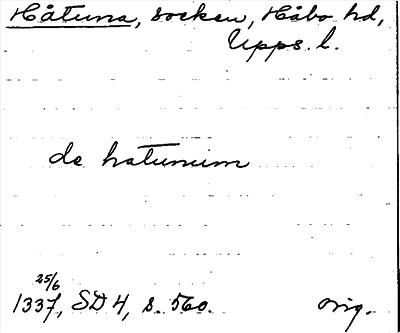 Håtuna, socken, Håbo hd,
Upps. l.
de hatunum
25/6
1337, SD 4, s. 560.
orig.